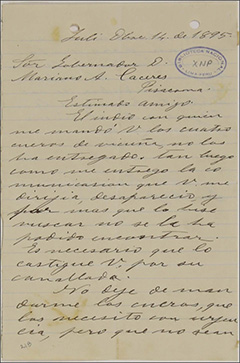 Juli Ebre 14 de 1895.
BIBLIOTECA NACIONAL
XNP
Sor Gobernador D.
Mariano A. Caceres
Pisscoma.
Estimado amigo:
El indio con quien
me mandó V los cuatro
cueros de vicuña no los
ha entregado. tan luego
como me entregó la co
municasion que V me
dirijia desaparecio y
por mas que lo hise
buscar no se la ha
podido encontrar.
Es necesario que lo
castigue V por su
canallada.
No deje de man
darme los cueros, que
los necesito con urjen
cia, pero que no sean